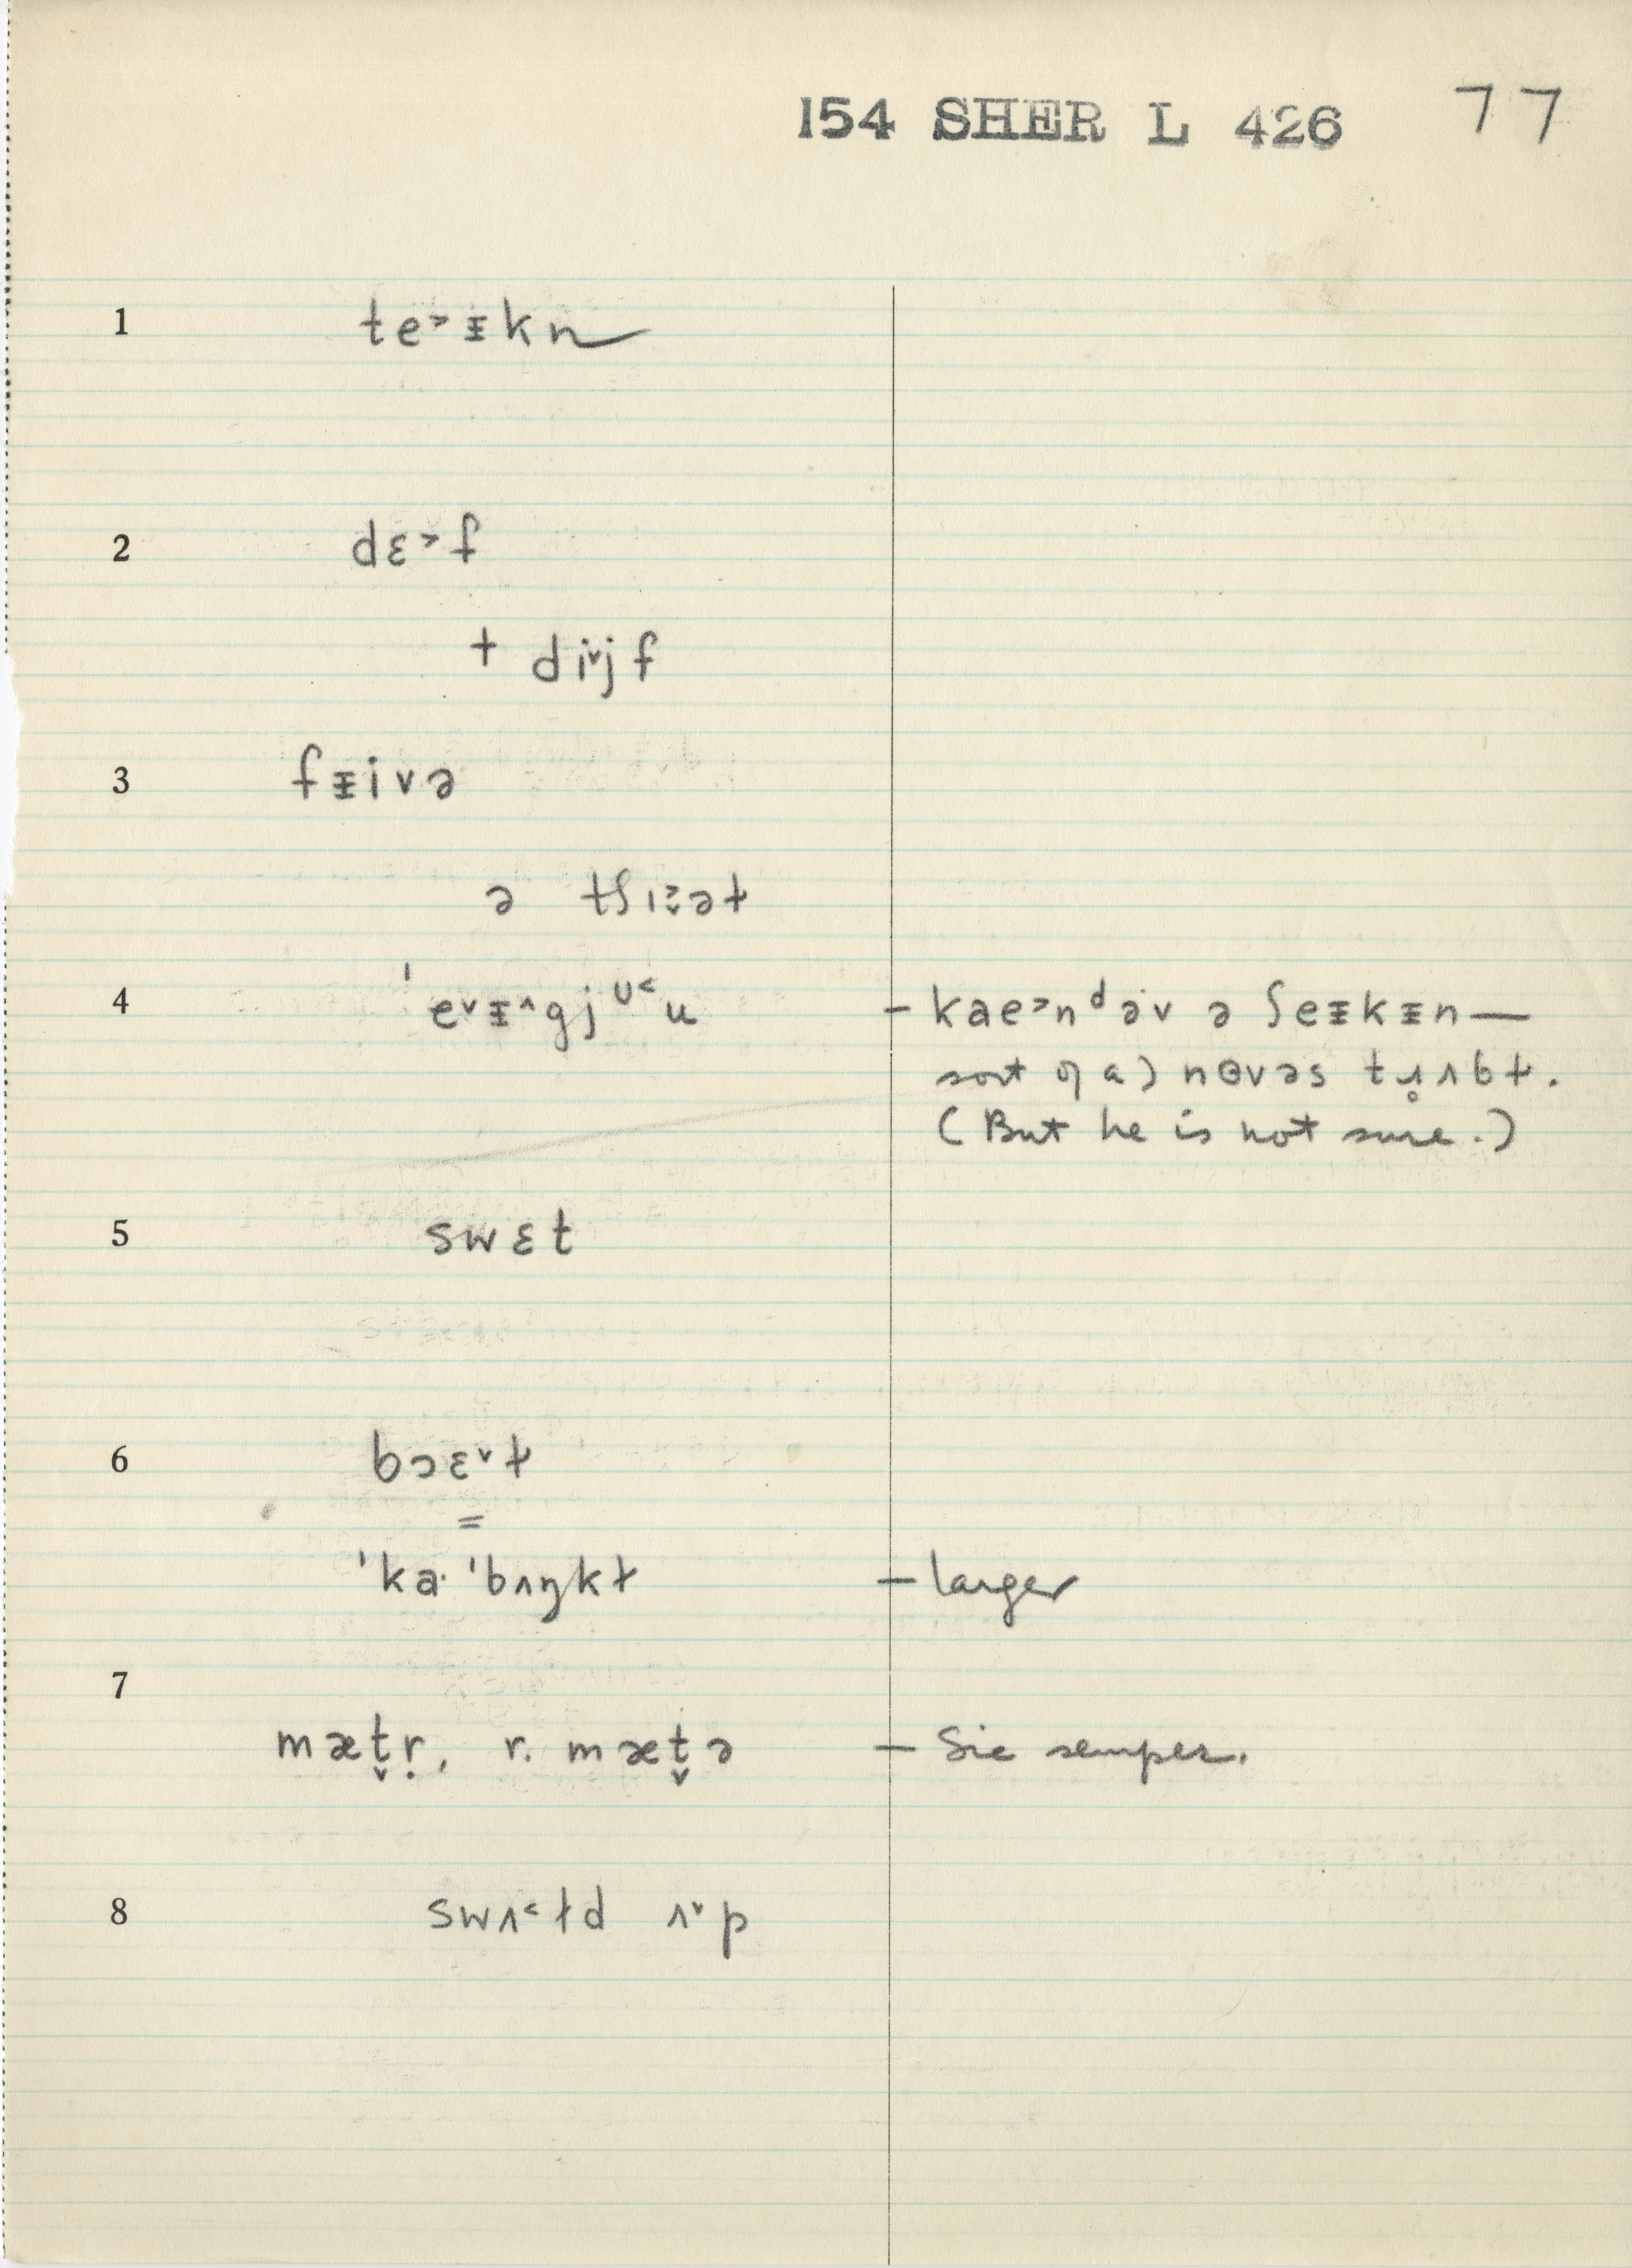 154 SHER L 426 77
1 te˃ᵻkn
2 dɛ˃f
+ di˅jf
3 fᵻivə
ə tʃɪ˃̬əɫ
4 ˈe˅ᵻ˄gjᶷ˂u – kae˃nᵈəv ə ʃeᵻkᵻn—
sort of a) nɵvəs tɹ̥ʌbɫ.
(But he is not sure.)
5 swɛt
6 bɔɛ˅ɫ
=
ˈkaˑˈbʌŋkɫ – larger
7
mæt̬ṛ, r. mæt̬ə – Sic semper.
8 swʌ˂ɫd ʌ˅p